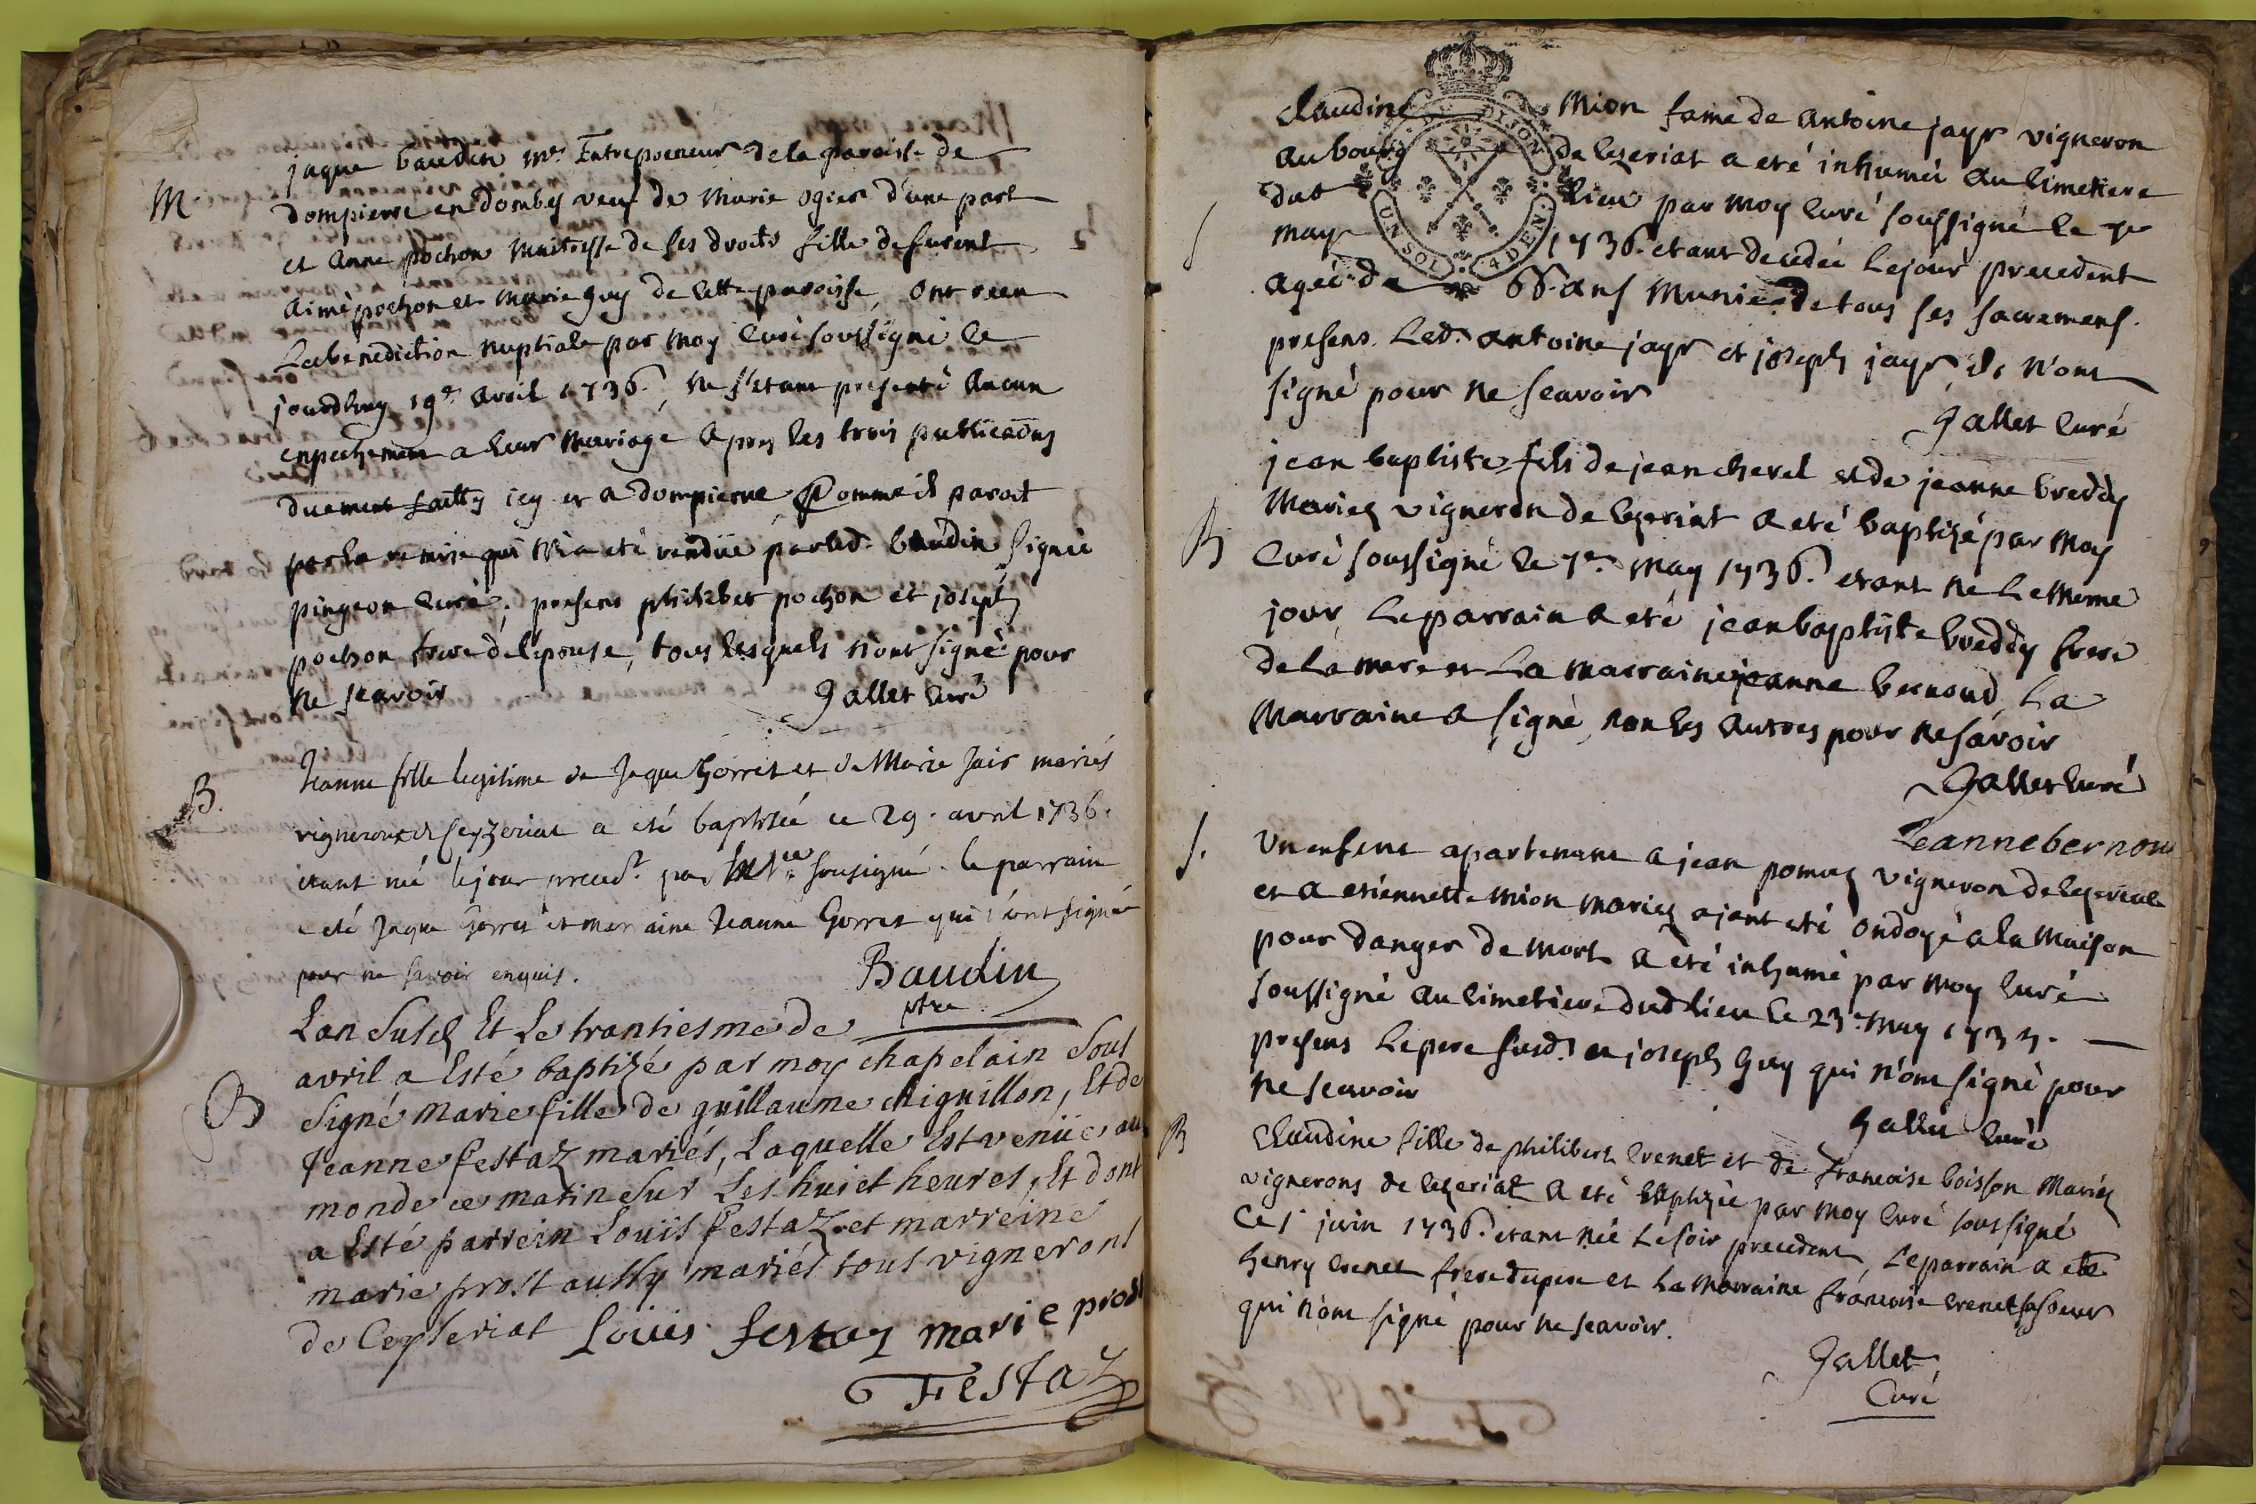 jaque baudin mr. Entrepreneur de la paroisse de
M
dompierre en dombes veuf de Marie ogier d'une part
et Anne pochon Maitresse de ses droits fille de furent
aimé pochon et Marie guy de cette paroisse, ont receu
La benediction nuptiale par moy curé soussigné le
jourdhuy 19e avril 1736. ne s'etant presenté aucun
enpechement a leur Mariage apres les trois publicaons
duement faittes icy et a dompierre Comme il paroit
par la remise qui m'a eté rendüe par led. baudin signée
pingeon curé. presens philibert pochon et joseph
pochon frere de l'epouse, tous lesquels n'ont signé pour
ne scavoir
gallet curé
B.
Jeanne fille legitime de Jaque Gorret et de Marie Jair mariés
vignerons de Ceyzeriat a eté baptisée ce 29. avril 1736.
etant née le jour preced.t par soussigné. le parrain
a eté Jaque Gorret et marraine Jeanne Gorret qui n'ont signé
pour ne savoir enquis.
Baudin
ptre
Lan Susd Et Le trantiesme de
avril a Esté baptizé par moy chapelain Sous
B
Signé Marie fille de guillaume chiguillon, Et de
Jeanne festaz mariés, Laquelle Est venüe au
monde ce matin Sur Les huict heures, Et dont
a Esté parrein Louïs festaz et marreine
marie prost aussy mariés tous vignerons
de Ceyseriat Loüis festaz marie prost
Festaz
UN SOL 4 DEN.
DIJON
Claudine Mion fame de antoine jayr vigneron
au bourg de Cezeriat a eté inhumée au Cimetiere
dud lieu par moy Curé soussigné le 7e
S
may 1736. etant decedée Le jour precedent
ageé de 66. ans Munie de tous ses sacremens.
presens Led. antoine jayr et joseph jayr, ils n'ont
signé pour ne scavoir
gallet curé
jean baptiste fils de jean chevel et de jeanne breddy
Mariez vigneron de Cezeriat a eté baptizé par moy
B
Curé soussigné le 7e. may 1736. etant né Le meme
jour, Le parrain a eté jean baptiste breddy frere
de La mere et La marraine jeanne bernoud, La
Marraine a signé, non les autres pour ne savoir
gallet curé
Jeanne bernou
S.
Un enfent apartenant a jean pomez vigneron de Cezeriat
et a etiennette Mion mariez ajant eté ondoyé a la Maison
pour danger de mort a eté inhumé par moy curé
soussigné au cimetiere dud lieu le 23e May 1736.
presens Le pere susd. et joseph guy qui n'ont signé pour
ne scavoir
gallet curé
B
Claudine fille de philibert Crenet et de francoise boisson Mariez
vignerons de Cezeriat a eté baptizée par moy curé soussigné
Ce 1r juin 1736. etant née Le soir precedent, Le parrain a eté
henry Crenet frere du pere et La Marraine francoise Crenet sa soeur
qui n'ont signé pour ne scavoir.
gallet
Curé